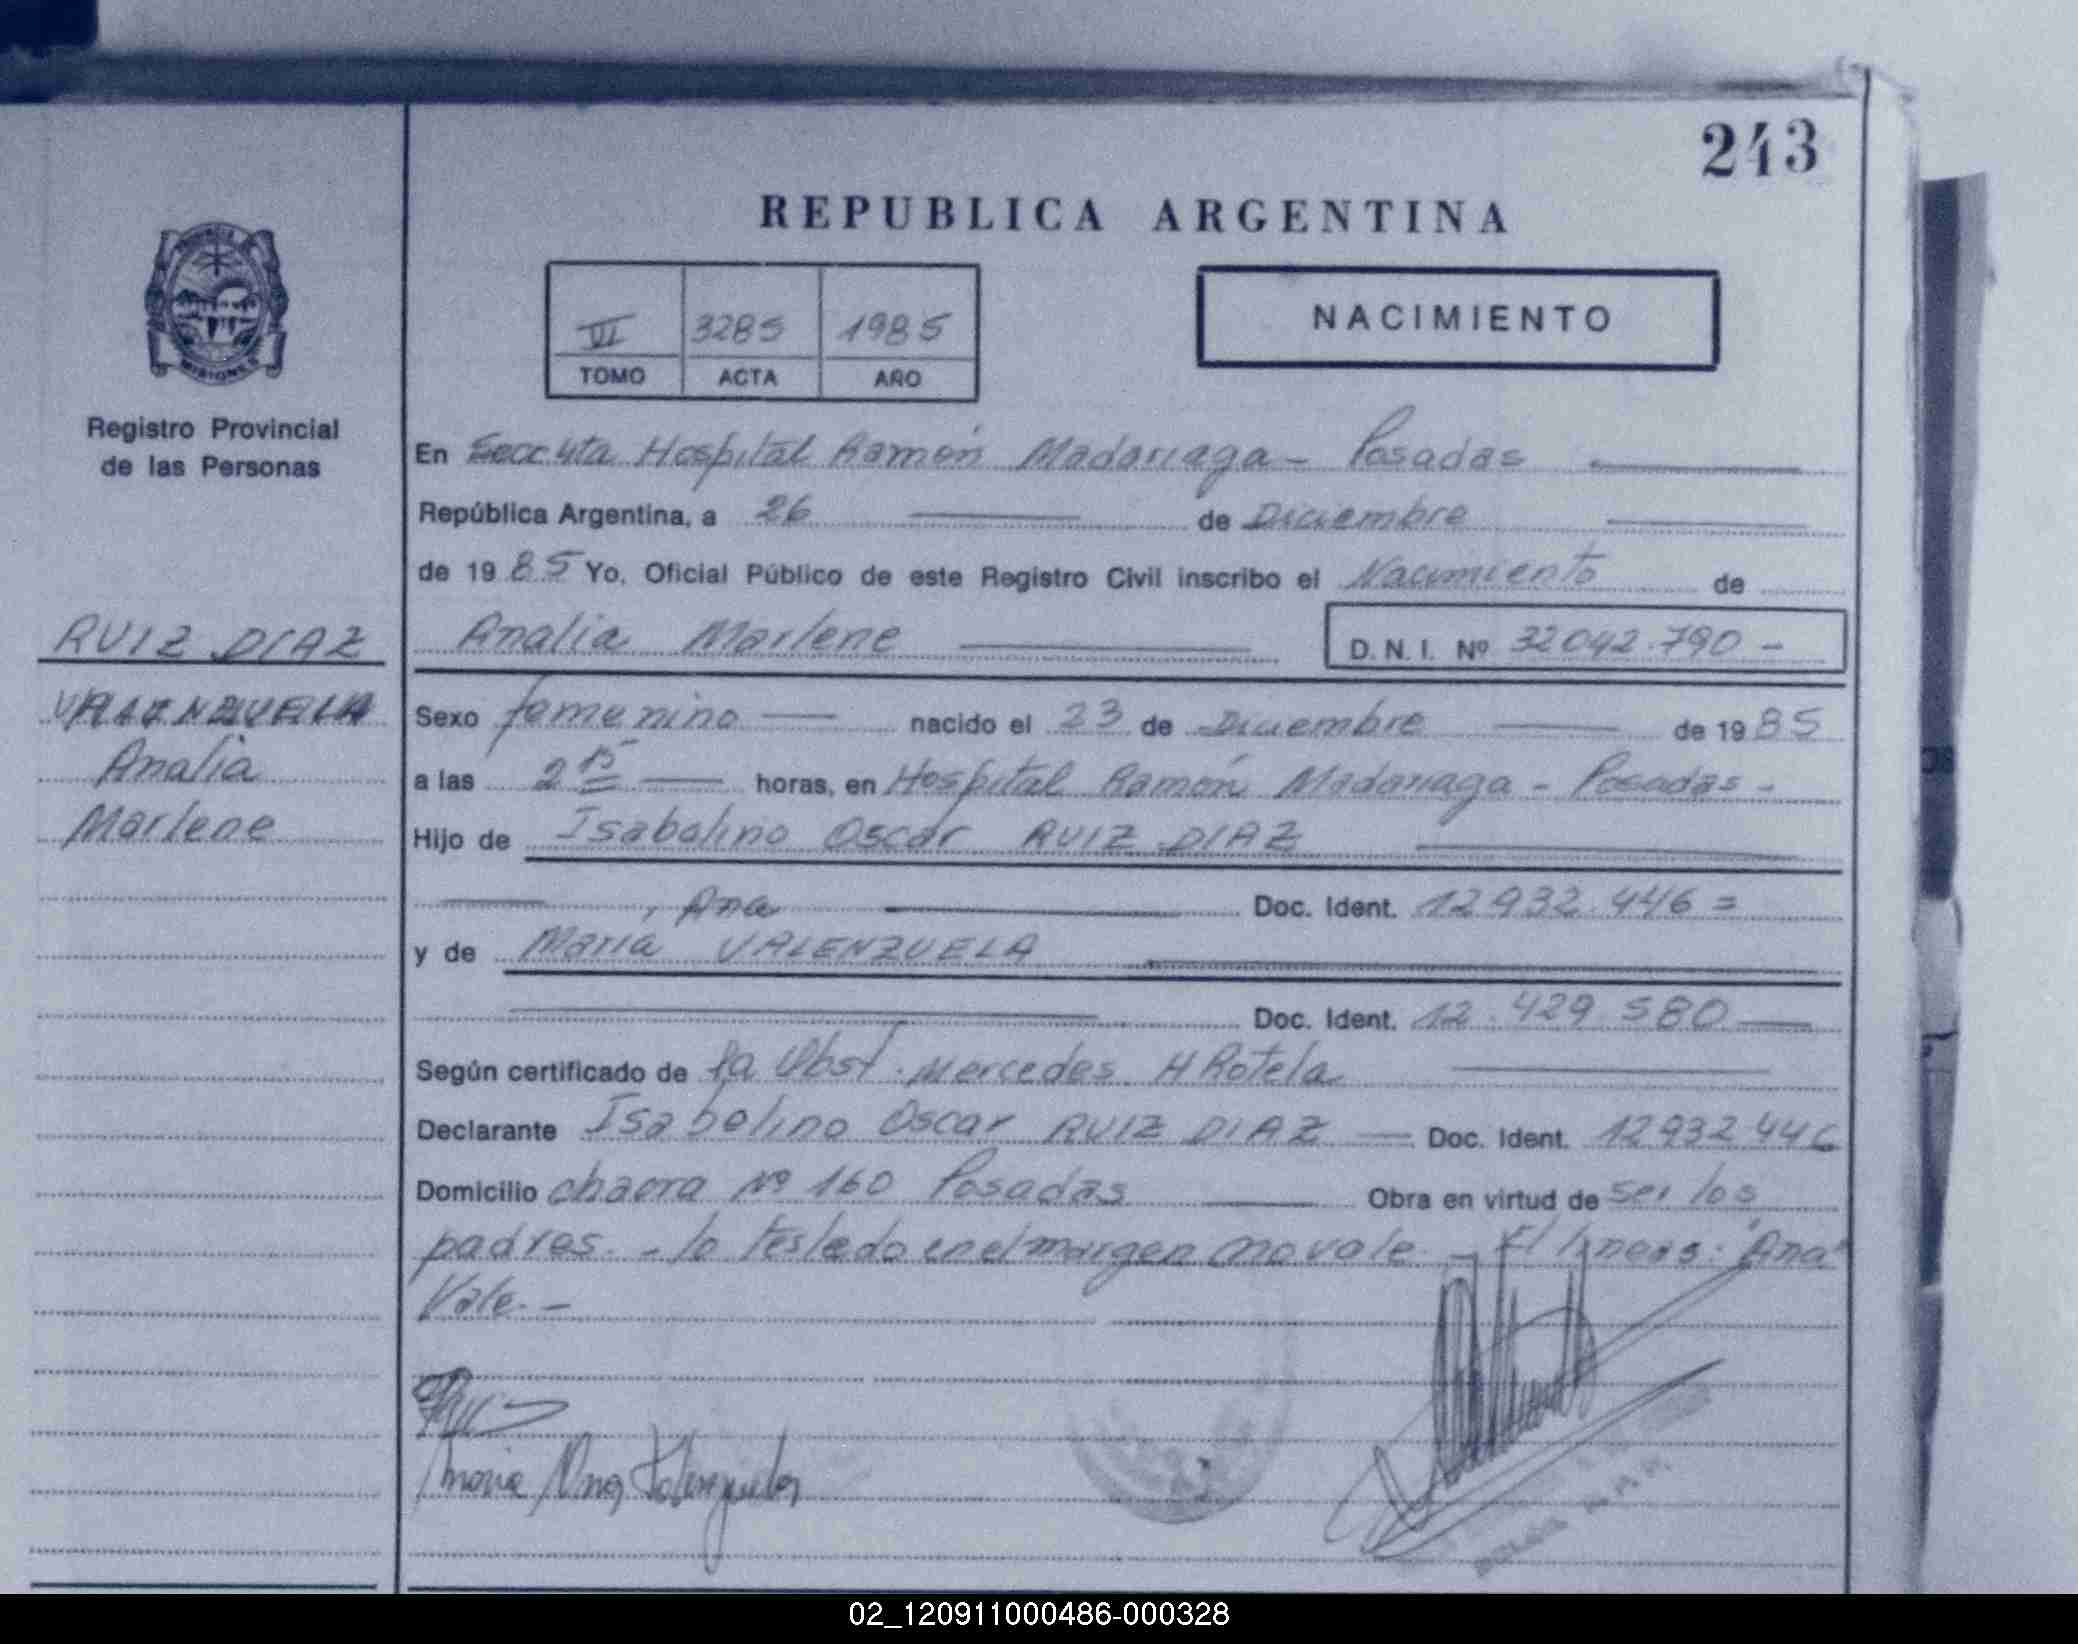 243
REPUBLICA ARGENTINA
VI 3285 1985
TOMO ACTA AÑO
NACIMIENTO
MISIONES
Registro Provincial
de las Personas
RUIZ DIAZ
VALENZUELA
Analia
Marlene
En Secc 4ta Hospital Ramón Madariaga - Posadas
República Argentina, a 26 de Diciembre
de 1985 Yo, Oficial Público de este Registro Civil inscribo el Nacimiento de
Analia Marlene D.N.I. Nº 32042.790 -
Sexo femenino nacido el 23 de Diciembre de 1985
a las 2 15 horas, en Hospital Ramón Madariaga - Posadas -
Hijo de Isabelino Oscar RUIZ DIAZ
, Ana Doc. Ident. 12932.446 =
y de Maria VALENZUELA
Doc. Ident. 12.429.580
Según certificado de la Obst. Mercedes H Rotela
Declarante Isabelino Oscar RUIZ DIAZ Doc. Ident. 12932446
Domicilio chacra Nº 160 Posadas Obra en virtud de ser los
padres. - lo testado en el margen no vale. - E/ lineas: "Ana"
Vale. -
Maria Ana Valenzuela
02_120911000486-000328